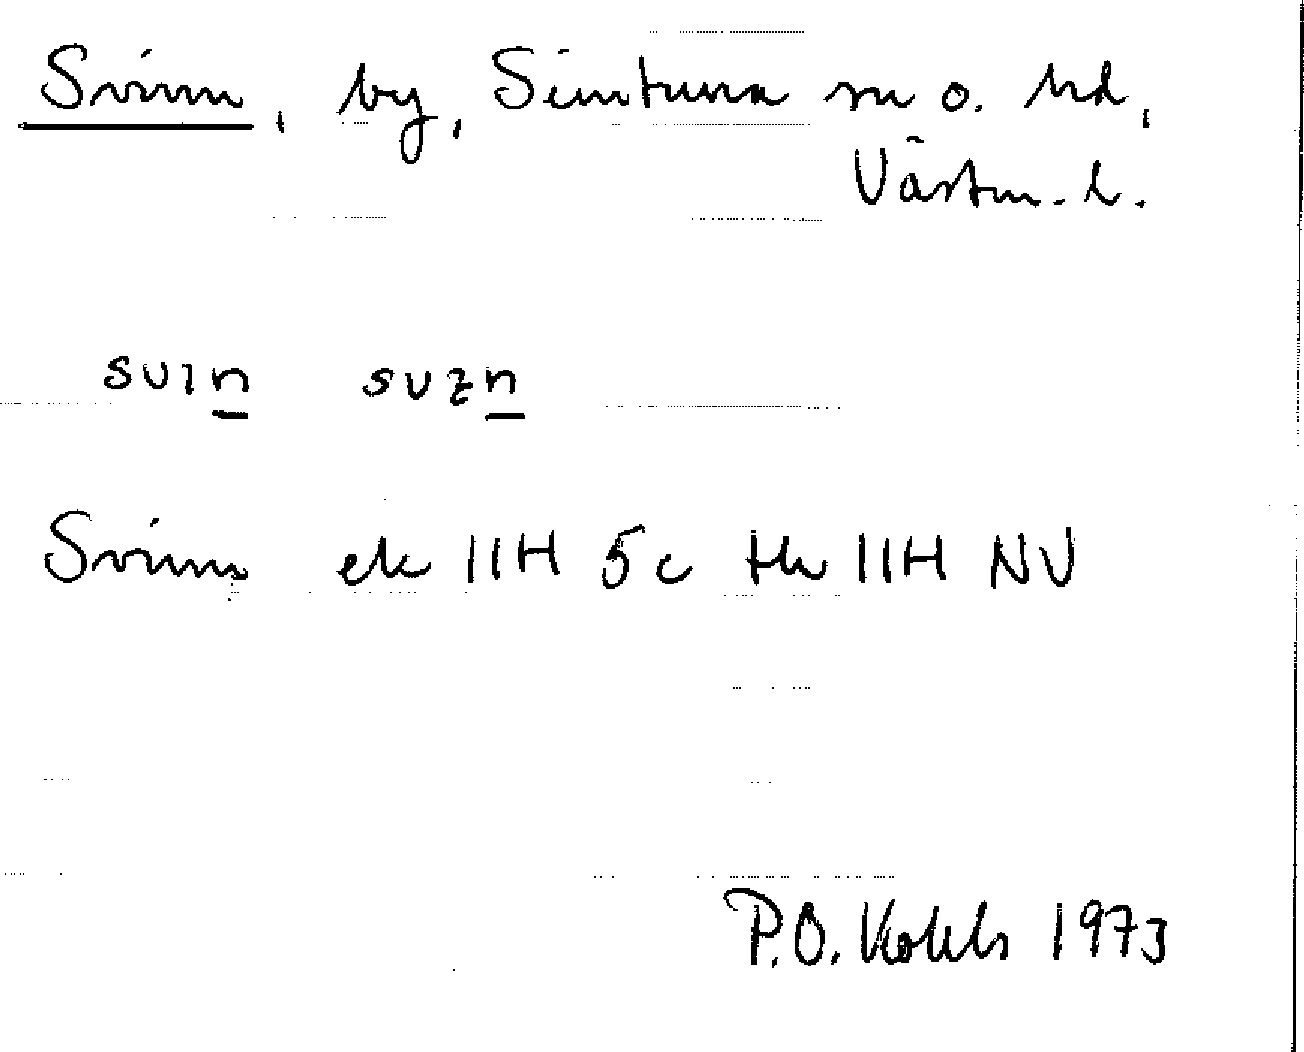 Svinn, by, Simtuna sn o. hd,
Västm. l.
svın svɀn
Svinn ek 11H 5c tk 11H NV
P.O. 1973